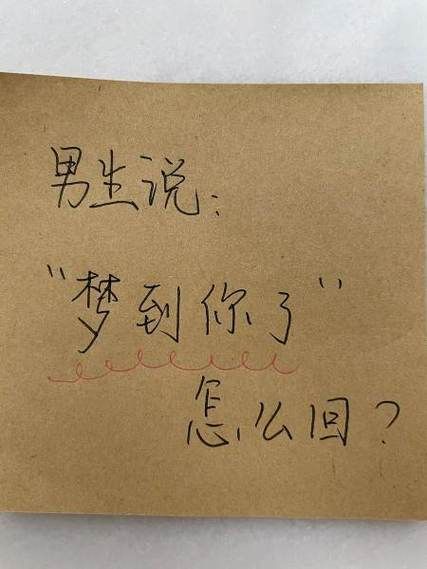 男生说：
“梦到你了”
怎么回？